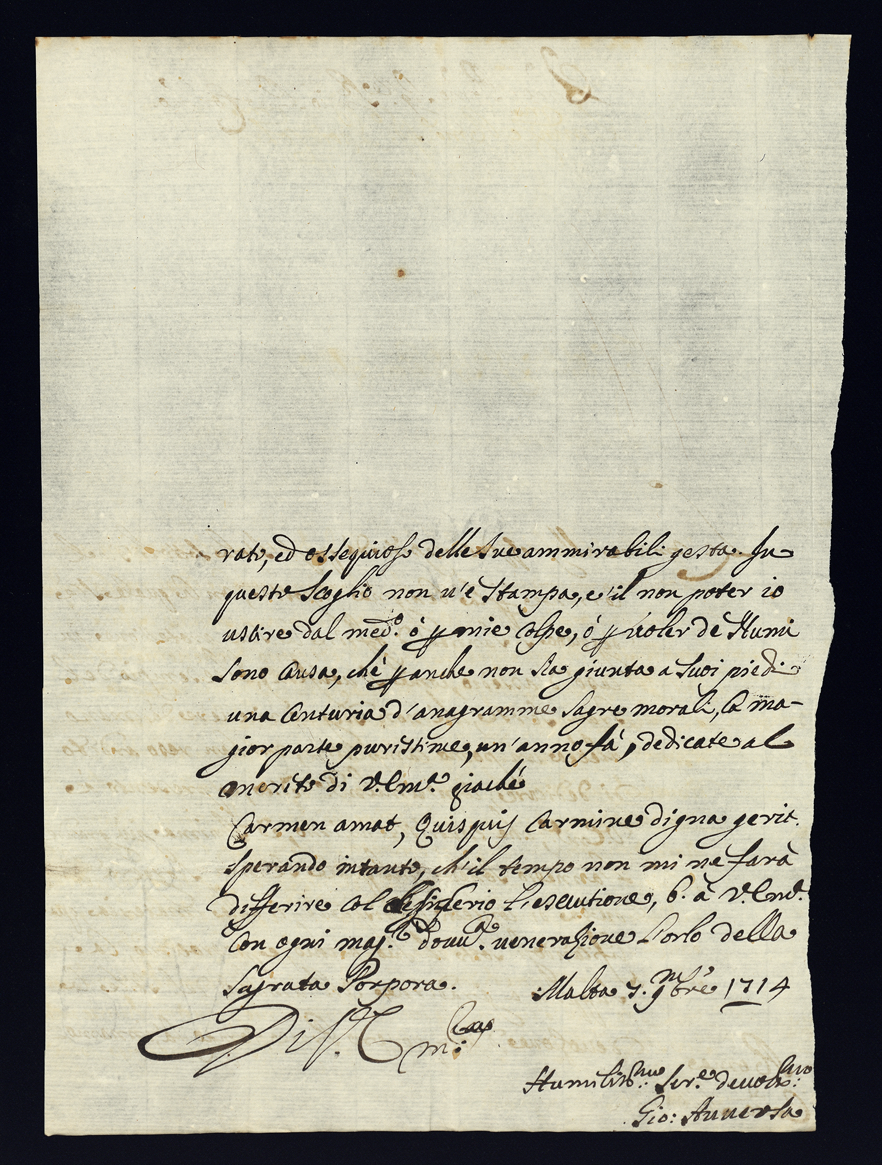 rato, ed ossequioso delle sue ammirabili gesta. In
questo scoglio non v'è stampa, e'il non poter io
uscire dal med.º ò p mie colpe, ò p voler de Numi
sono causa, chè p anche non sia giunta a suoi piedi
una centuria d'anagramme sagre morali, la ma-
gior parte purissime, un'anno fà, dedicate al
merito di V. Em.ª giachè
Carmen amat, quisquis Carmine digna gerit.
sperando intanto, ch'il tempo non mi ne farà
differire col desiderio l'esecutione, b. à V. Em.ª
con ogni mag.r dovu.ª venerazione l'orlo della
sagrata Porpora. Malta 7. 9mbre 1714
Di V. Em.
Humiliss.mo Ser.e devotiss.mo
Gio: Anversa